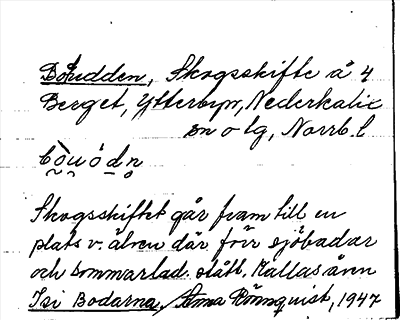 Bodudden, Skogsskifte å 4
Berget, Ytterbyn, Nederkalix
sn o lg, Norrb. l
Skogsskiftet går fram till en
plats v. älven där förr sjöbodar
och sommarlad. stått. Kallas även
Isi Bodarna, Anna Rönnquist, 1947